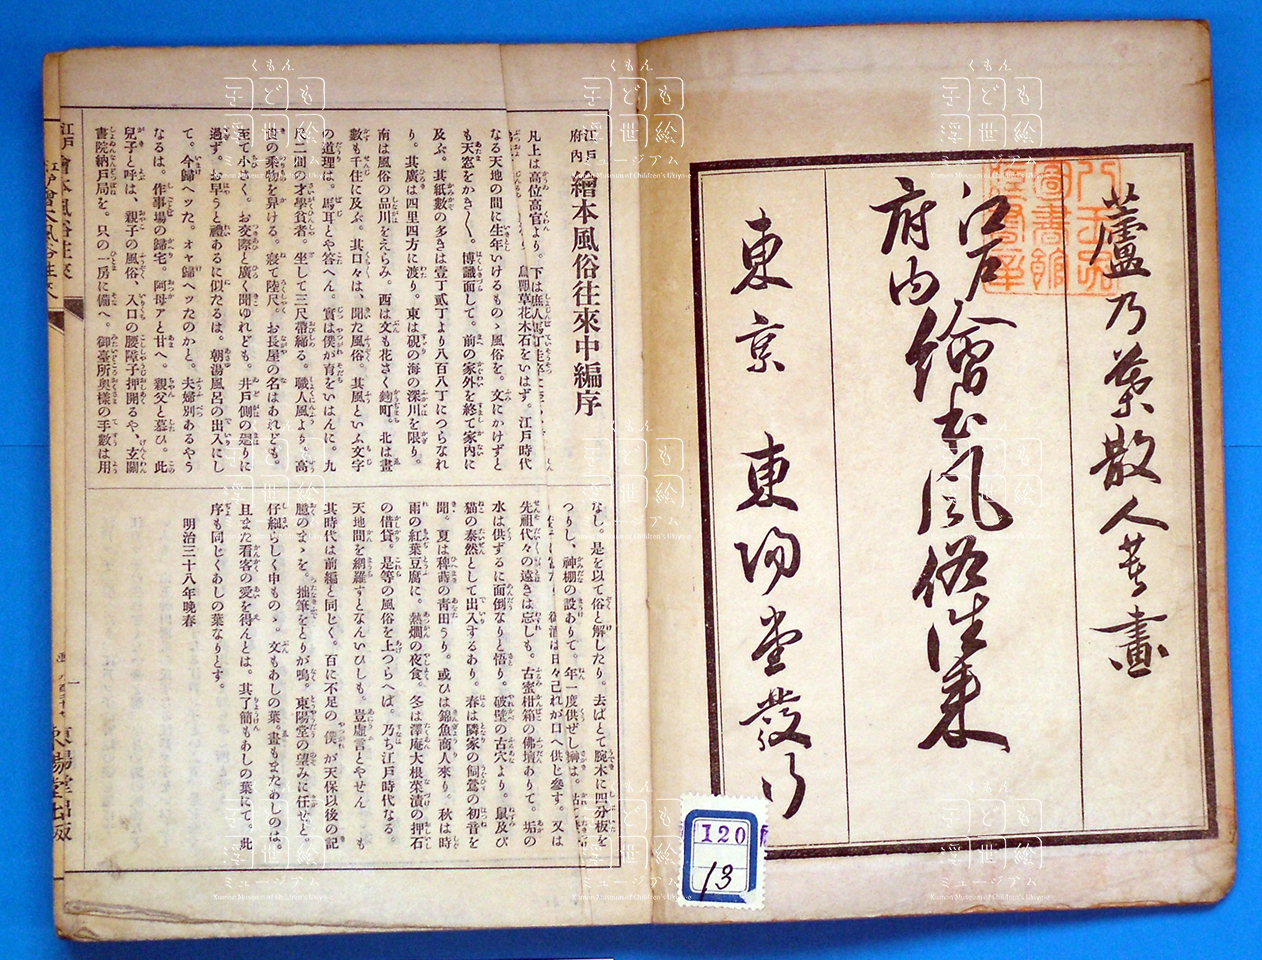 蘆乃葉散人著畫
江戸府内 繪本風俗往来
東京 東陽堂發行
I20
13
江戸府内 繪本風俗往來中編序
凡上は高位高官より。下は庶人馬丁
なる天地の間に生年いけるものゝ風俗を。文にかけずと
も天窓をかき〳〵。博識面して。前の家外を終て家内に
及ぶ。其紙數の多きは壹丁貳丁より八百八丁につらなれ
り。其廣は四里四方に渡り。東は硯の海の深川を限り。
南は風俗の品川をえらみ。西は文も花さく麹町。北は畫
數も千住に及ぶ。其口々は、聞た風俗。其風といふ文字
の道理は。馬耳とや答へん。實は僕が育を。いはんに。九
尺二間の才學貧者。坐して三尺帶締る。職人風より。高
貴の乘物を舁ける。寢て陸尺。お長屋の名はあれども。
至て小さく。お交際と廣く聞ゆれども。井戸側の廻りに
過ず。お早うと禮あるに似たるは。朝湯風呂の出入にし
て。今歸へッた。オャ歸へッたのかと。夫婦別あるやう
なるは。作事場の歸宅。阿母アと甘へ。親父と慕ひ。此
兒子と呼は、親子の風俗、入口の腰障子押開るや、玄關
書院納戸局を。只の一房に備へ。御臺所奥樣の手數は用
なし。是を以て俗と解したり。去ばとて腕木に四分板を
つりし、神棚の設ありて。年一度供ぜし榊は。
御酒は日々己れが口へ供じ參す。又は
先祖代々の遠きは忘しも。古蜜柑箱の佛壇ありて。垢の
水は供ずるに面倒なりと悟り。破壁の古穴より。鼠及び
猫の泰然として出入するあり。春は隣家の飼鶯の初音を
聞。夏は稗蒔の青田うり。或ひは錦魚商人來り。秋は時
雨の紅葉豆腐に。熱燗の夜食。冬は澤庵大根菜漬の押石
の借貸。是等の風俗を上つらへば。乃ち江戸時代なる。
天地間を網羅すとなんいひしも。豈虚言とやせん も
其時代は前編と同じく。百に不足の 僕 が天保以後の記
臆のまゝを。拙筆をとりが鳴。東陽堂の望みに任せと。
仔細らしく申ものゝ。文もあしの葉。畫もまたあしのは。
且また看客の愛を得んとは。其了簡もあしの葉にて。此
序も同じくあしの葉なりとす。
明治三十八年晩春
くもん
子ども
浮世絵
ミュージアム
Kumon Museum of Children's Ukiyo-e